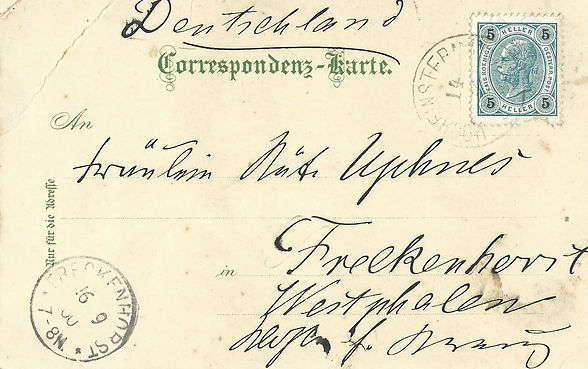 Deutschland
Correspondenz-Karte.
5 HELLER 5
5 HELLER 5
14
An
Fräulein Käte Uphues
Nur für die Adresse
in Freckenhorst
Westphalen
FRECKENHORST
16 9 00
7-8N